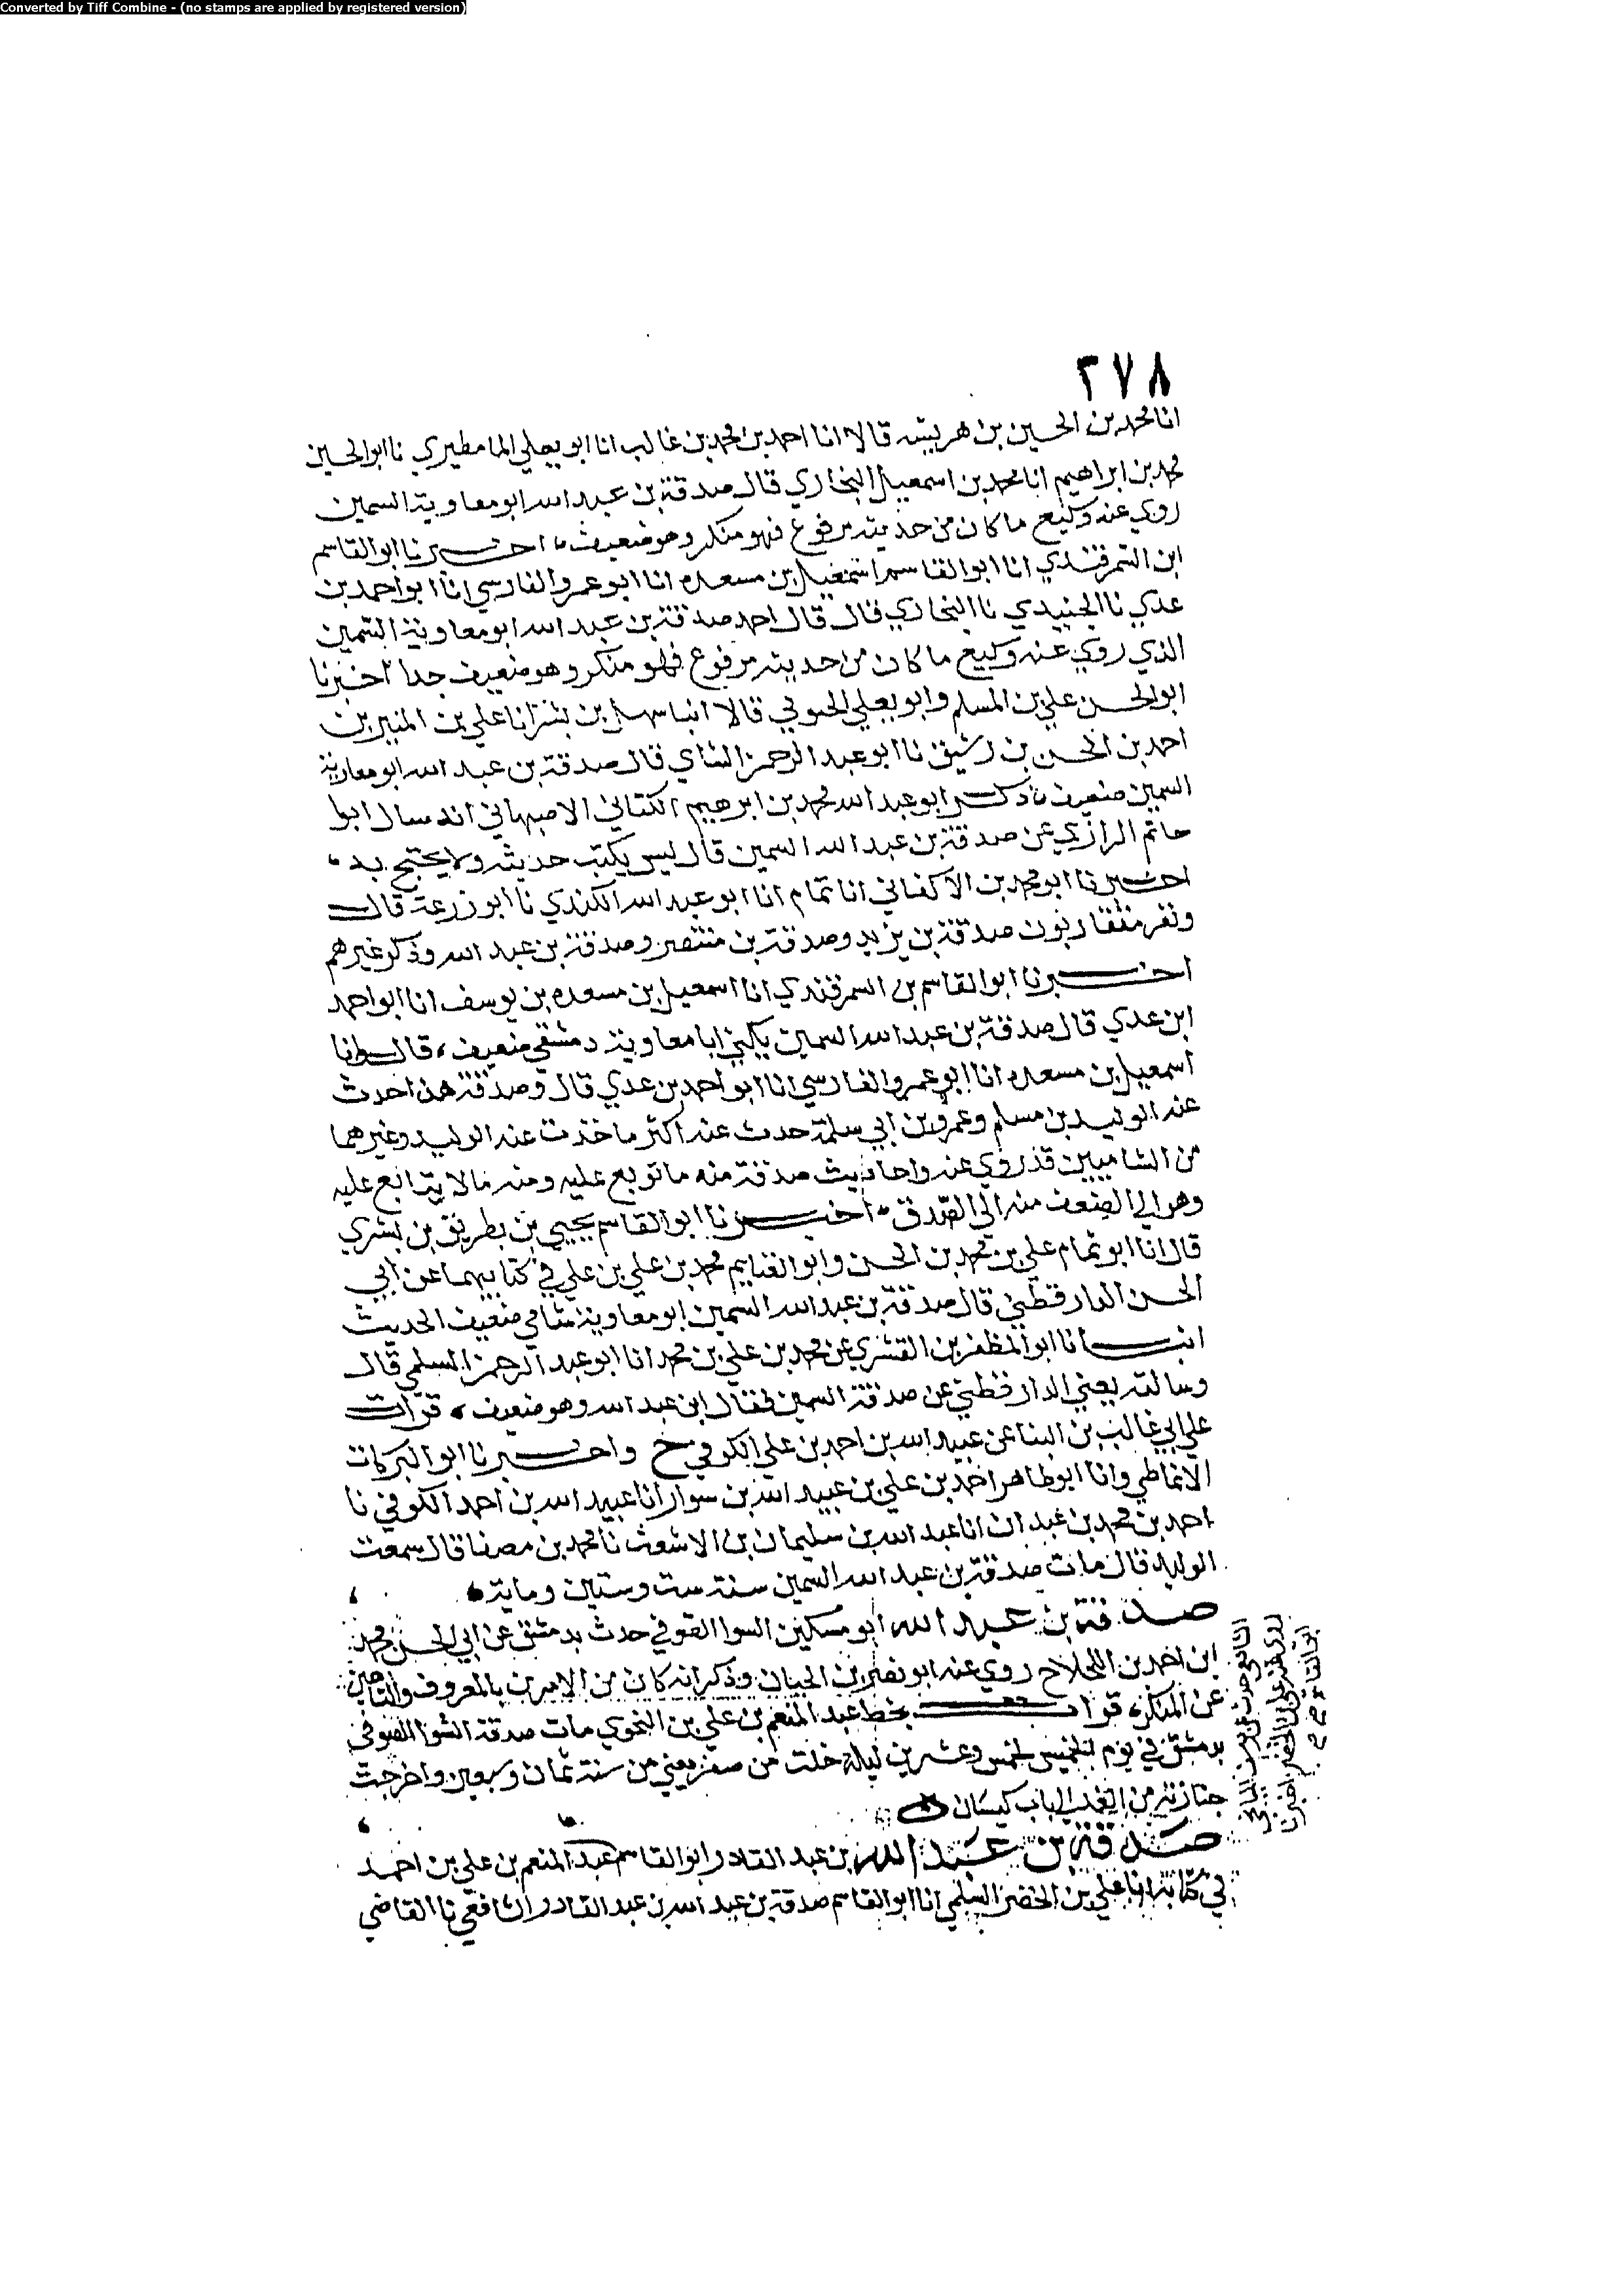 Converted by Tiff Combine - (no stamps are applied by registered version)
٢٧٨
انا محمد بن الحسين بن هريسه قالا انا احمد بن محمد بن غالب انا ابو يعلي المامطيري نا ابو الحسين
محمد بن ابراهيم انا محمد بن اسمعيل البخاري قال صدقة بن عبد الله ابو معاوية السمين
روي عنه وكيع ما كان من حديثه مرفوع فهو منكر وهو ضعيف اخبرنا ابو القاسم
ابن السمرقندي انا ابو القاسم اسمعيل بن مسعده انا ابو عمرو الفارسي انا ابو احمد بن
عدي نا الجنيدي نا البخاري قال قال احمد صدقة بن عبد الله ابو معاوية السمين
الذي روي عنه وكيع ما كان من حديثه مرفوع فهو منكر وهو ضعيف جدا اخبرنا
ابو الحسن علي بن المسلم وابو يعلي الحبوبي قالا انبا سهل بن بشر انا علي بن المنير بن
احمد بن الحسن بن رشيق نا ابو عبد الرحمن النساي قال صدقة بن عبد الله ابو معاوية
السمين ضعيف ذكر ابو عبد الله محمد بن ابرهيم الكتاني الاصبهاني انه سال ابوا
حاتم الرازي عن صدقة بن عبد الله السمين قال ليس يكتب حديثه ولا يحتج به
اخبرنا ابو محمد بن الاكفاني انا تمام انا ابو عبد الله الكندي نا ابو زرعة قال
ونفر متقاربون صدقة بن يزيد وصدقة بن منتصر وصدقة بن عبد الله وذكر غيرهم
اخبرنا ابو القاسم بن السمرقندي انا اسمعيل بن مسعده بن يوسف انا ابو احمد
ابن عدي قال صدقة بن عبد الله السمين يكني ابا معاوية دمشقي ضعيف قال وانا
اسمعيل بن مسعده انا ابو عمرو الفارسي انا ابو احمد بن عدي قال وصدقة هذا حدث
عنه الوليد بن مسلم وعمرو بن ابي سلمة حدث عنه اكثر ما حدث عنه الوليد وغيرهما
من الشاميين قد روي عنه واحاديث صدقة منه ما توبع عليه ومنه ما لا يتابع عليه
وهو الي الضعف منه الي الصدق اخبرنا ابو القاسم يحيي بن بطريق بن بشري
قال انا ابو تمام علي بن محمد بن الحسن وابو الغنايم محمد بن علي بن علي في كتابيهما عن ابي
الحسن الدارقطني قال صدقة بن عبد الله السمين ابو معاوية شامي ضعيف الحديث
انبانا ابو المظفر بن القشيري عن محمد بن علي بن محمد انا ابو عبد الرحمن السلمي قال
وسالته يعني الدارقطني عن صدقة السمين فقال ابن عبد الله وهو ضعيف قرات
علي ابي غالب بن البنا عن عبيد الله بن احمد بن علي الكوفي ح واخبرنا ابو البركات
الانماطي وانا ابو طاهر احمد بن علي بن عبيد الله بن سوار انا عبيد الله بن احمد الكوفي نا
احمد بن محمد بن عبدان انا عبد الله بن سليمان بن الاشعث نا محمد بن مصفا قال سمعت
الوليد قال مات صدقة بن عبد الله السمين سنة ست وستين وماية
صدقة بن عبد الله ابو مسكين السوا القوفي حدث بدمشق عن ابي الحسن محمد
ابن احمد بن اللجلاح روي عنه ابو نصر بن الجبان وذكر انه كان من الامرين بالمعروف والناهين
عن المنكر قرات بخط عبد المنعم بن علي بن النحوي مات صدقة الشوا الصوفي
بدمشق في يوم الخميس لخمس وعشرين ليلة خلت من صفر يعني من سنة ثمان وسبعين واخرجت
جنازته من الغد الي باب كيسان
صدقة بن عبد الله بن عبد القادر ابو القاسم عبد المنعم بن علي بن احمد
في كتابه انا علي بن الخضر السلمي انا ابو القاسم صدقة بن عبد الله بن عبد القادر الشافعي نا القاضي
الشافعي حدث عن يوسف
روي عنه علي بن الخضر اخبرنا
ابو القاسم صح